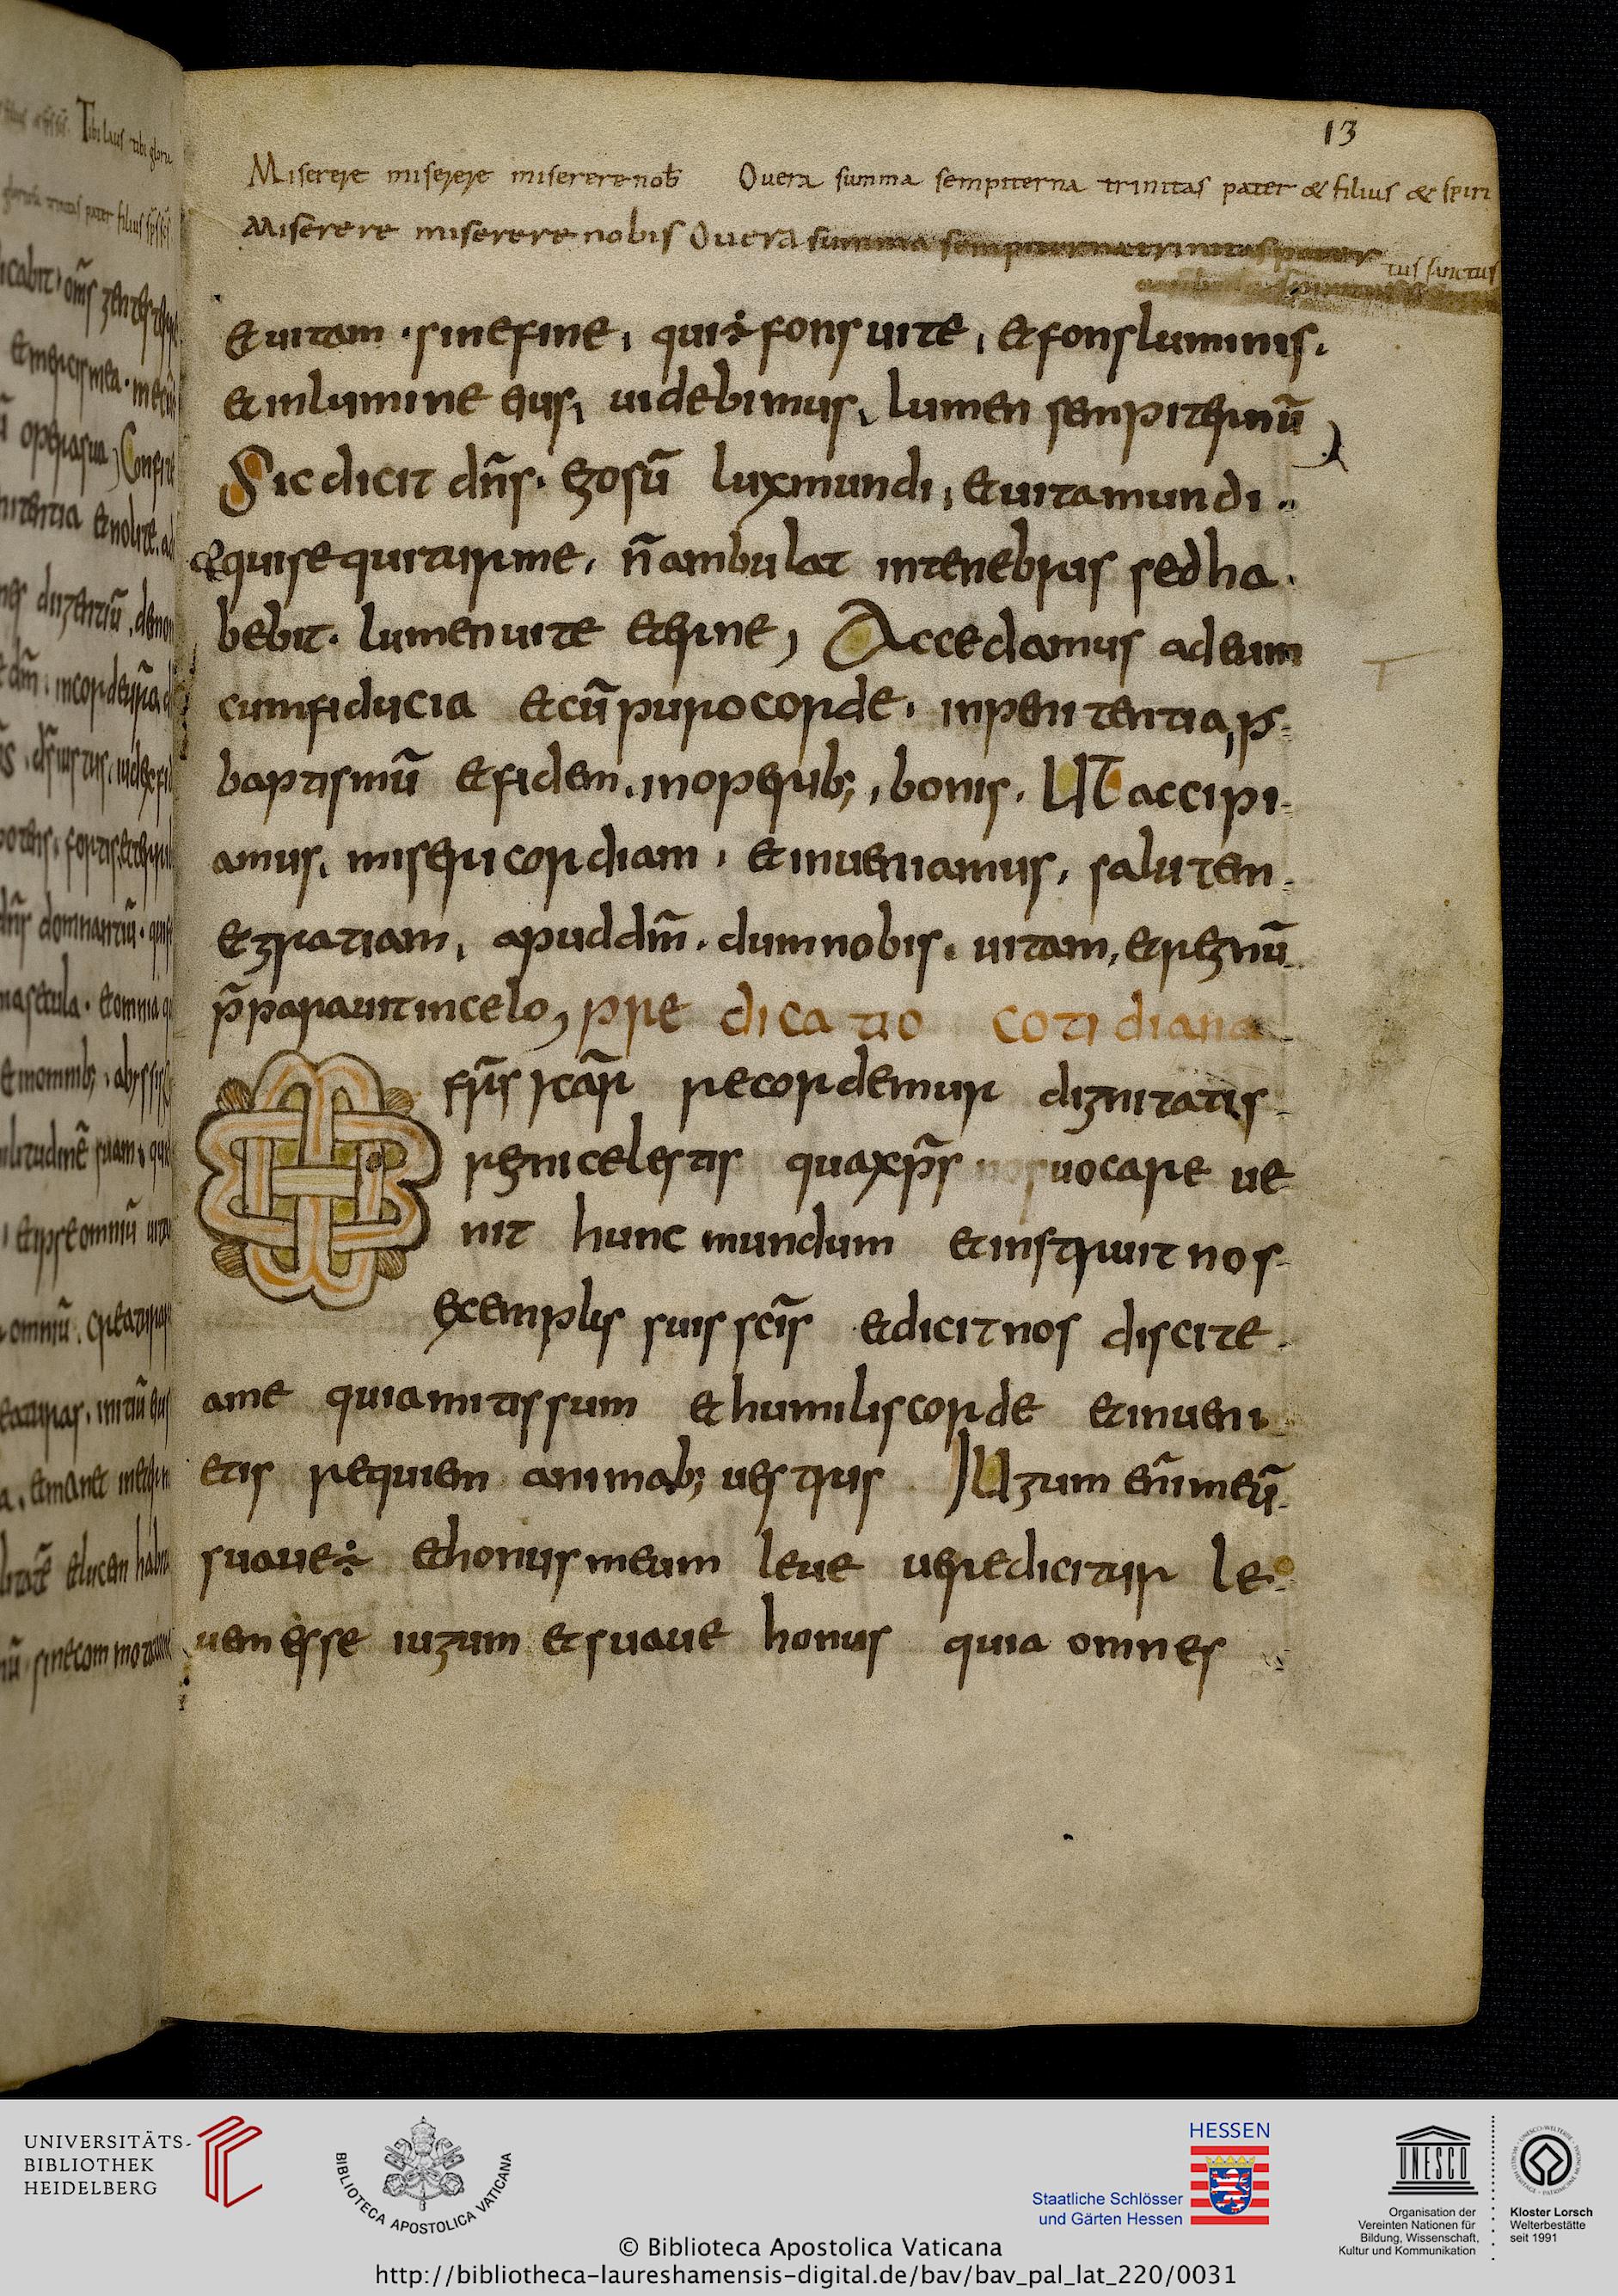 13
Miserere miserere miserere nob̄ O uera summa sempiterna trinitas pater & filius & spiri
Miserere miserere nobis O uera summa sempiterna trinitas pater
tus sanctus
& uitam · sine fine, qui ÷ fons uite, & fons luminis.
& in lumine eius, uidebimus, lumen sempiternū
Sic dicit dn̄s. ego sū lux mundi, & uita mundi..
& qui sequitur me, n̄ ambulat in tenebris sed ha.
bebit. lumen uite eterne, Accedamus ad eum
cum fiducia & cū puro corde. in penitentia, p
baptismū & fidem. in operib; , bonis. Ut accipi
amus, misericordiam, & inueniamus, salutem
& gratiam, apud dm̄. dum nobis. uitam, & regnū
p̄parauit in celo, pre dica tio coti diana
frs̄ kar̄ recordemur dignitatis
regni celestis qua xps̄ nos uocare ue
nit hunc mundum & instruit nos
exemplis suis scīs & dicit nos discite
a me quia mitis sum & humilis corde & inueni
etis requiem animab; uestris Iugum enī meū
suaue ÷ & honus meum leue uere dicitur le
uem esse iugum & suaue honus quia omnes
UNIVERSITÄTS-
BIBLIOTHEK
HEIDELBERG
BIBLIOTECA APOSTOLICA VATICANA
HESSEN
Staatliche Schlösser
und Gärten Hessen
UNESCO
Organisation der
Vereinten Nationen für
Bildung, Wissenschaft,
Kultur und Kommunikation
Kloster Lorsch
Welterbestätte
seit 1991
© Biblioteca Apostolica Vaticana
http://bibliotheca-laureshamensis-digital.de/bav/bav_pal_lat_220/0031